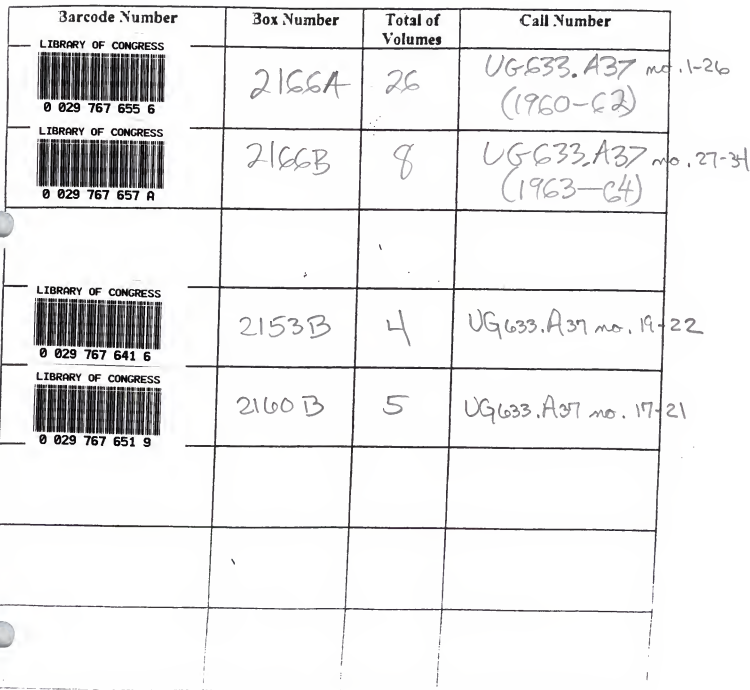 Barcode Number Box Number Total of Volumes Call Number
LIBRARY OF CONGRESS
0 029 767 655 6
2166A 26 UG633.A37 no. 1-26
(1960-62)
LIBRARY OF CONGRESS
0 029 767 657 A
2166B 8 UG633.A37 no. 27-34
(1963-64)
LIBRARY OF CONGRESS
0 029 767 641 6
2153B 4 UG633.A37 no. 19-22
LIBRARY OF CONGRESS
0 029 767 651 9
2160B 5 UG633.A37 no. 17-21